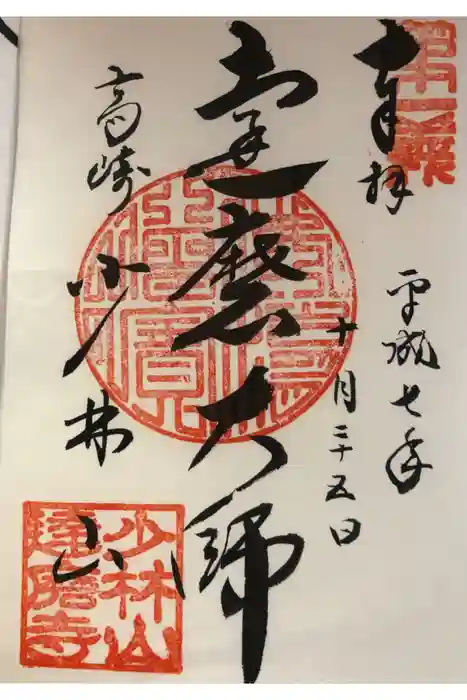 奉拝
第一義
平成七年
十月二十五日
達磨大師
高崎
少林山
少林山
達磨寺